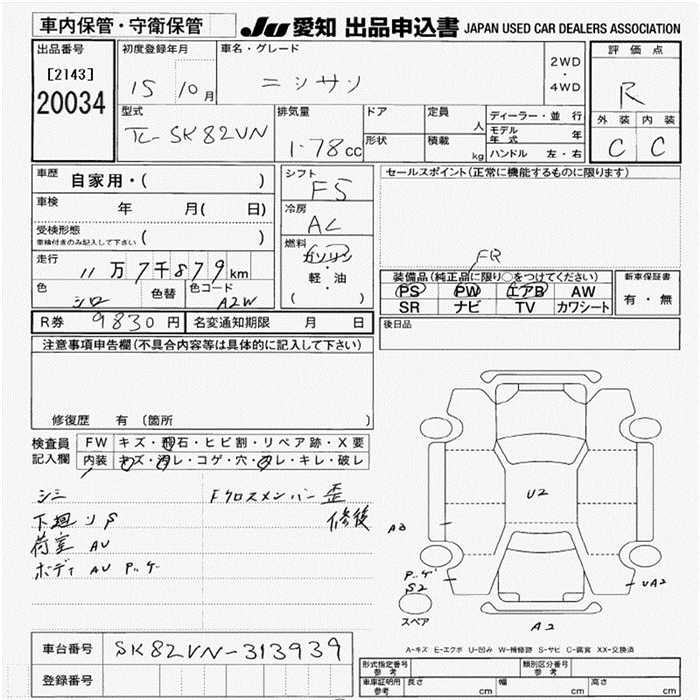 車内保管・守衛保管
JU 愛知 出品申込書 JAPAN USED CAR DEALERS ASSOCIATION
出品番号 初度登録年月 車名・グレード 2WD・4WD 評価点
[2143] 15 10月 ニッサン R
20034
型式 排気量 ドア 定員 人 ディーラー・並行 外装 内装
TC-SK82VN 1.78cc 形状 積載 kg モデル年式 年 C C
ハンドル 左・右
車歴 自家用・( ) シフト F5 セールスポイント(正常に機能するものに限ります)
車検 年 月( 日) 冷房 AC
受検形態 車検付きのみ記入して下さい ( ) 燃料 ガソリン・軽・油 ( )
走行 11万7千879km
色 シロ 色替 色コード A2W
装備品(純正品に限り○をつけてください) 新車保証書
PS PW エアB AW 有・無
SR ナビ TV カワシート
R券 9830円 名変通知期限 月 日 後日品
注意事項申告欄(不具合内容等は具体的に記入して下さい)
修復歴 有 (箇所 )
検査員記入欄 FW キズ・飛石・ヒビ割・リペア跡・X要
内装 キズ・汚レ・コゲ・穴・スレ・キレ・破レ
シミ Fクロスメンバー歪
下廻りS 修復
荷室 AU
ボディ AU
U2
S2
UA2
スペア
A2
車台番号 SK82VN-313939
登録番号
A-キズ E-エクボ U-凹み W-補修跡 S-サビ C-腐食 XX-交換済
形式指定番号 参考 類別区分番号 参考
車庫証明用 参考 長さ cm 幅 cm 高さ cm